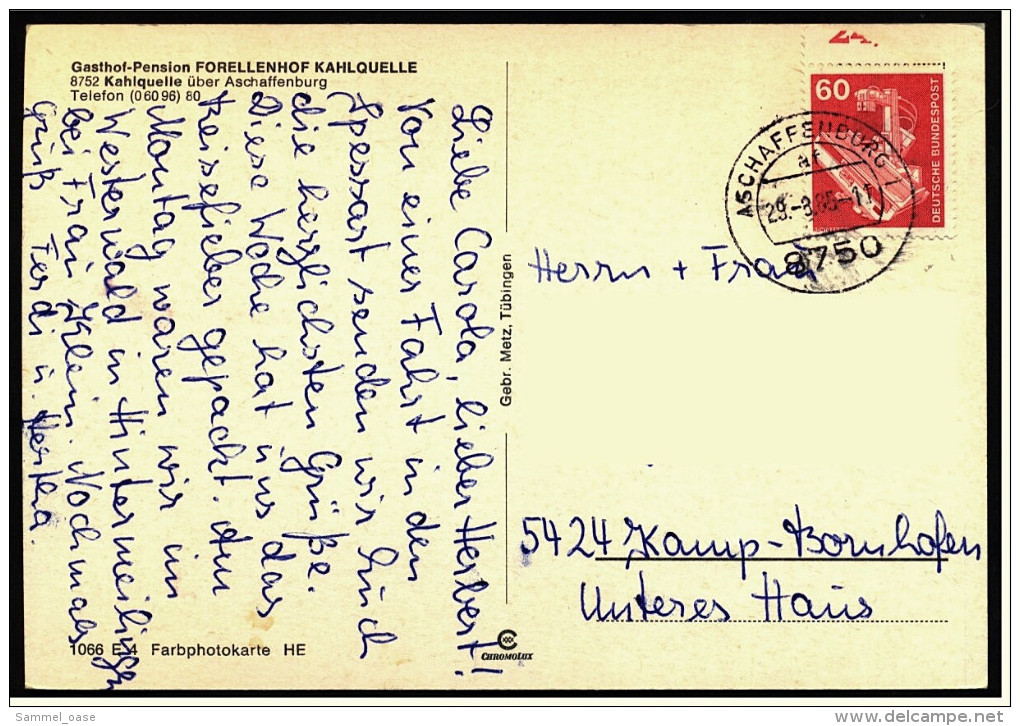 Gasthof-Pension FORELLENHOF KAHLQUELLE
8752 Kahlquelle über Aschaffenburg
Telefon (0 60 96) 80
Liebe Carola, lieber Herbert!
Von einer Fahrt in den
Spessart senden wir Euch
die herzlichsten Grüße.
Diese Woche hat uns das
Reisefieber gepackt. Am
Montag waren wir im
Westerwald in Hintermeilingen
bei Frau Klein. Nochmals
Gruß Ferdi u. Hertha.
1066 E 4 Farbphotokarte HE
Gebr. Metz, Tübingen
CHROMOLUX
24.
60
DEUTSCHE BUNDESPOST
ASCHAFFENBURG 1
29.-8.85-11
8750
Herrn + Frau
5424 Kamp-Bornhofen
Unteres Haus
Sammel_oase
www.delcampe.net